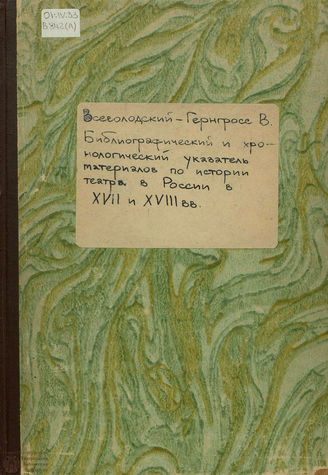 01.IV.33
В842(А)
Всеволодский-Гернгросс В.
Библиографический и хро-
нологический указатель
материалов по истории
театра в России в
XVII и XVIII вв.